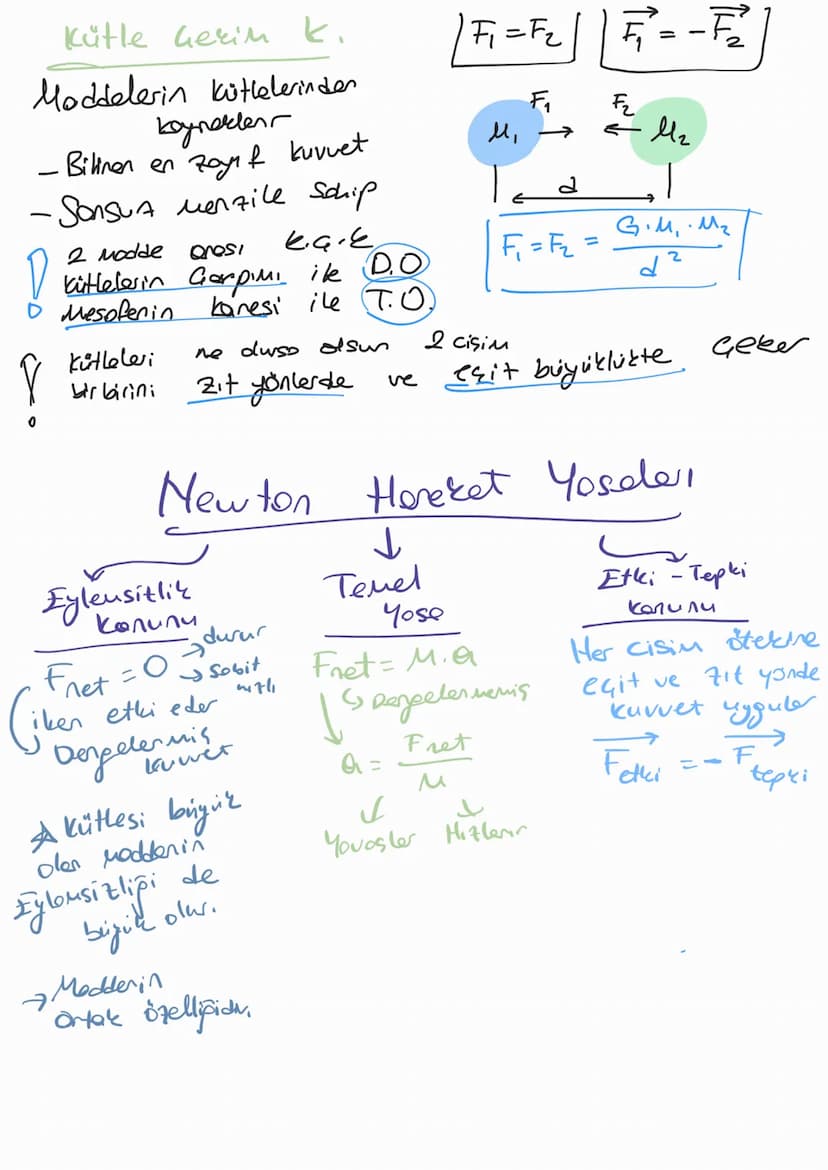 Kütle Çekim k.
F₁ = F₂
F₁ = -F₂
Maddelerin kütlelerinden
kaynaklanır
- Bilinen en zayıf kuvvet
- Sonsuz menzile sahip
F₁ F₂
M₁ M₂
d
F₁ = F₂ = G.M₁.M₂ / d²
! 2 madde arası K.Ç.K
kütlelerin Çarpımı ile D.O
Mesafenin karesi ile T.O.
! Kütleleri ne olursa olsun 2 cisim
birbirini zıt yönlerde ve eşit büyüklükte Çeker
Newton Hareket Yasaları
Eylemsizlik
Konunu
Fnet = 0 → durur
→ Sabit
hızlı
iken etki eder
Dengelenmiş
kuvvet
☆ Kütlesi büyük
olan maddenin
Eylemsizliği de
büyük olur.
→ Maddenin
ortak özelliğidir.
Temel
Yasa
Fnet = M.a
↳ Dengelenmemiş
a = Fnet / M
Yavaşlar Hızlanır
Etki - Tepki
Kanunu
Her cisim ötekine
eşit ve zıt yönde
kuvvet uygular
Fetki = - Ftepki